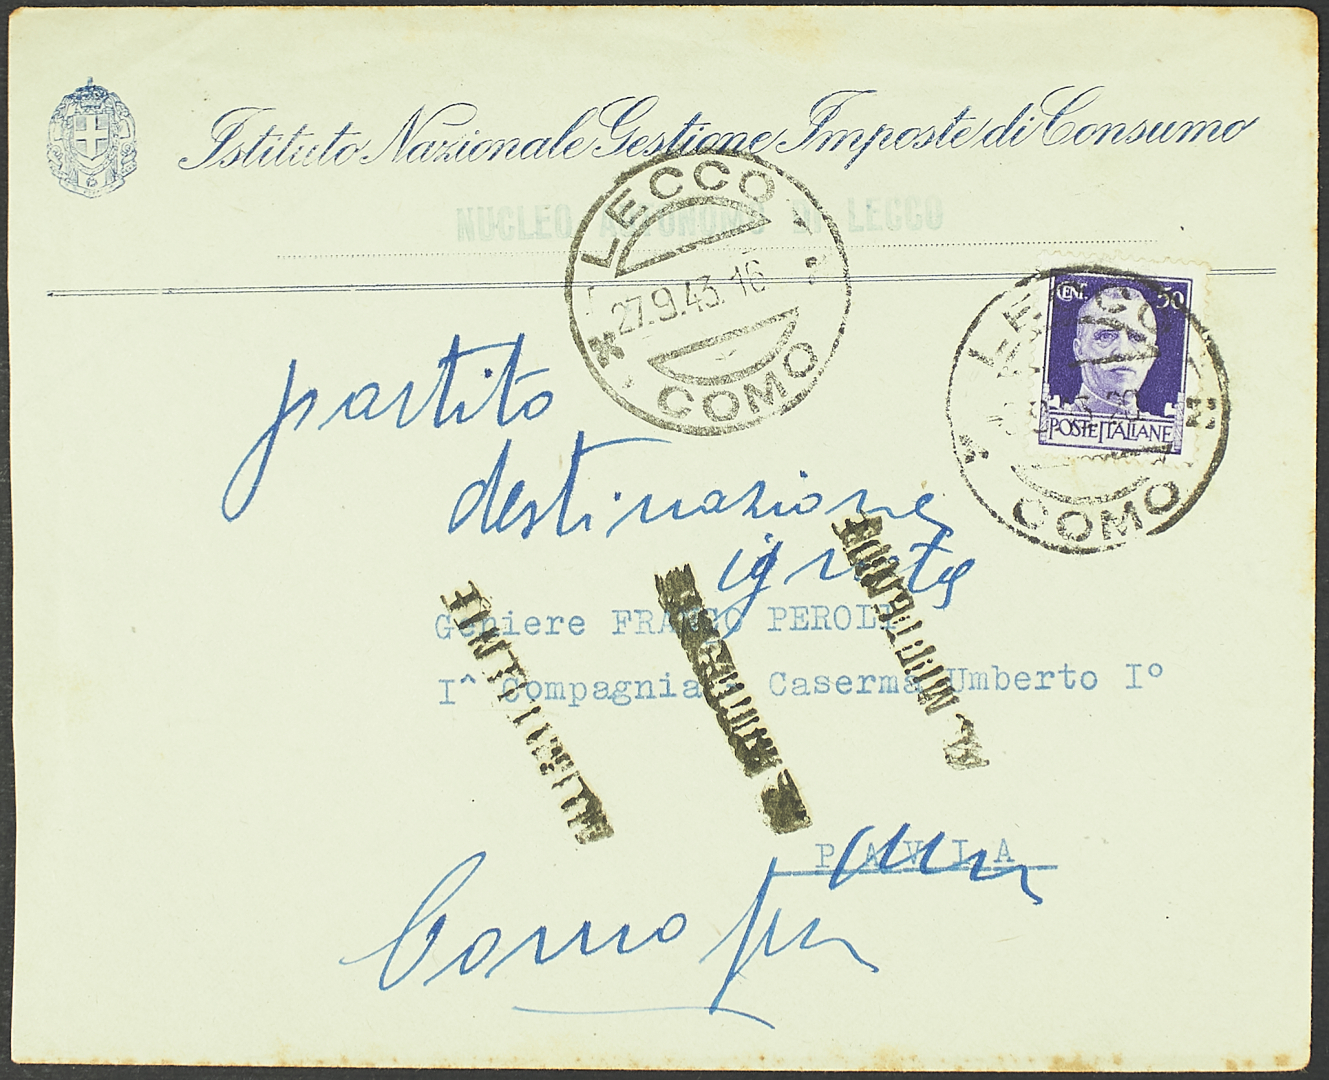 Istituto Nazionale Gestione Imposte di Consumo
NUCLEO AUTONOMO DI LECCO
LECCO
27.9.43.16
COMO
CENT. 50
POSTE ITALIANE
LECCO
COMO
partito
destinazione
ignota
Geniere FRANCO PEROLI
I^ Compagnia Caserma Umberto I°
AL MITTENTE
AL MITTENTE
AL MITTENTE
PAVIA